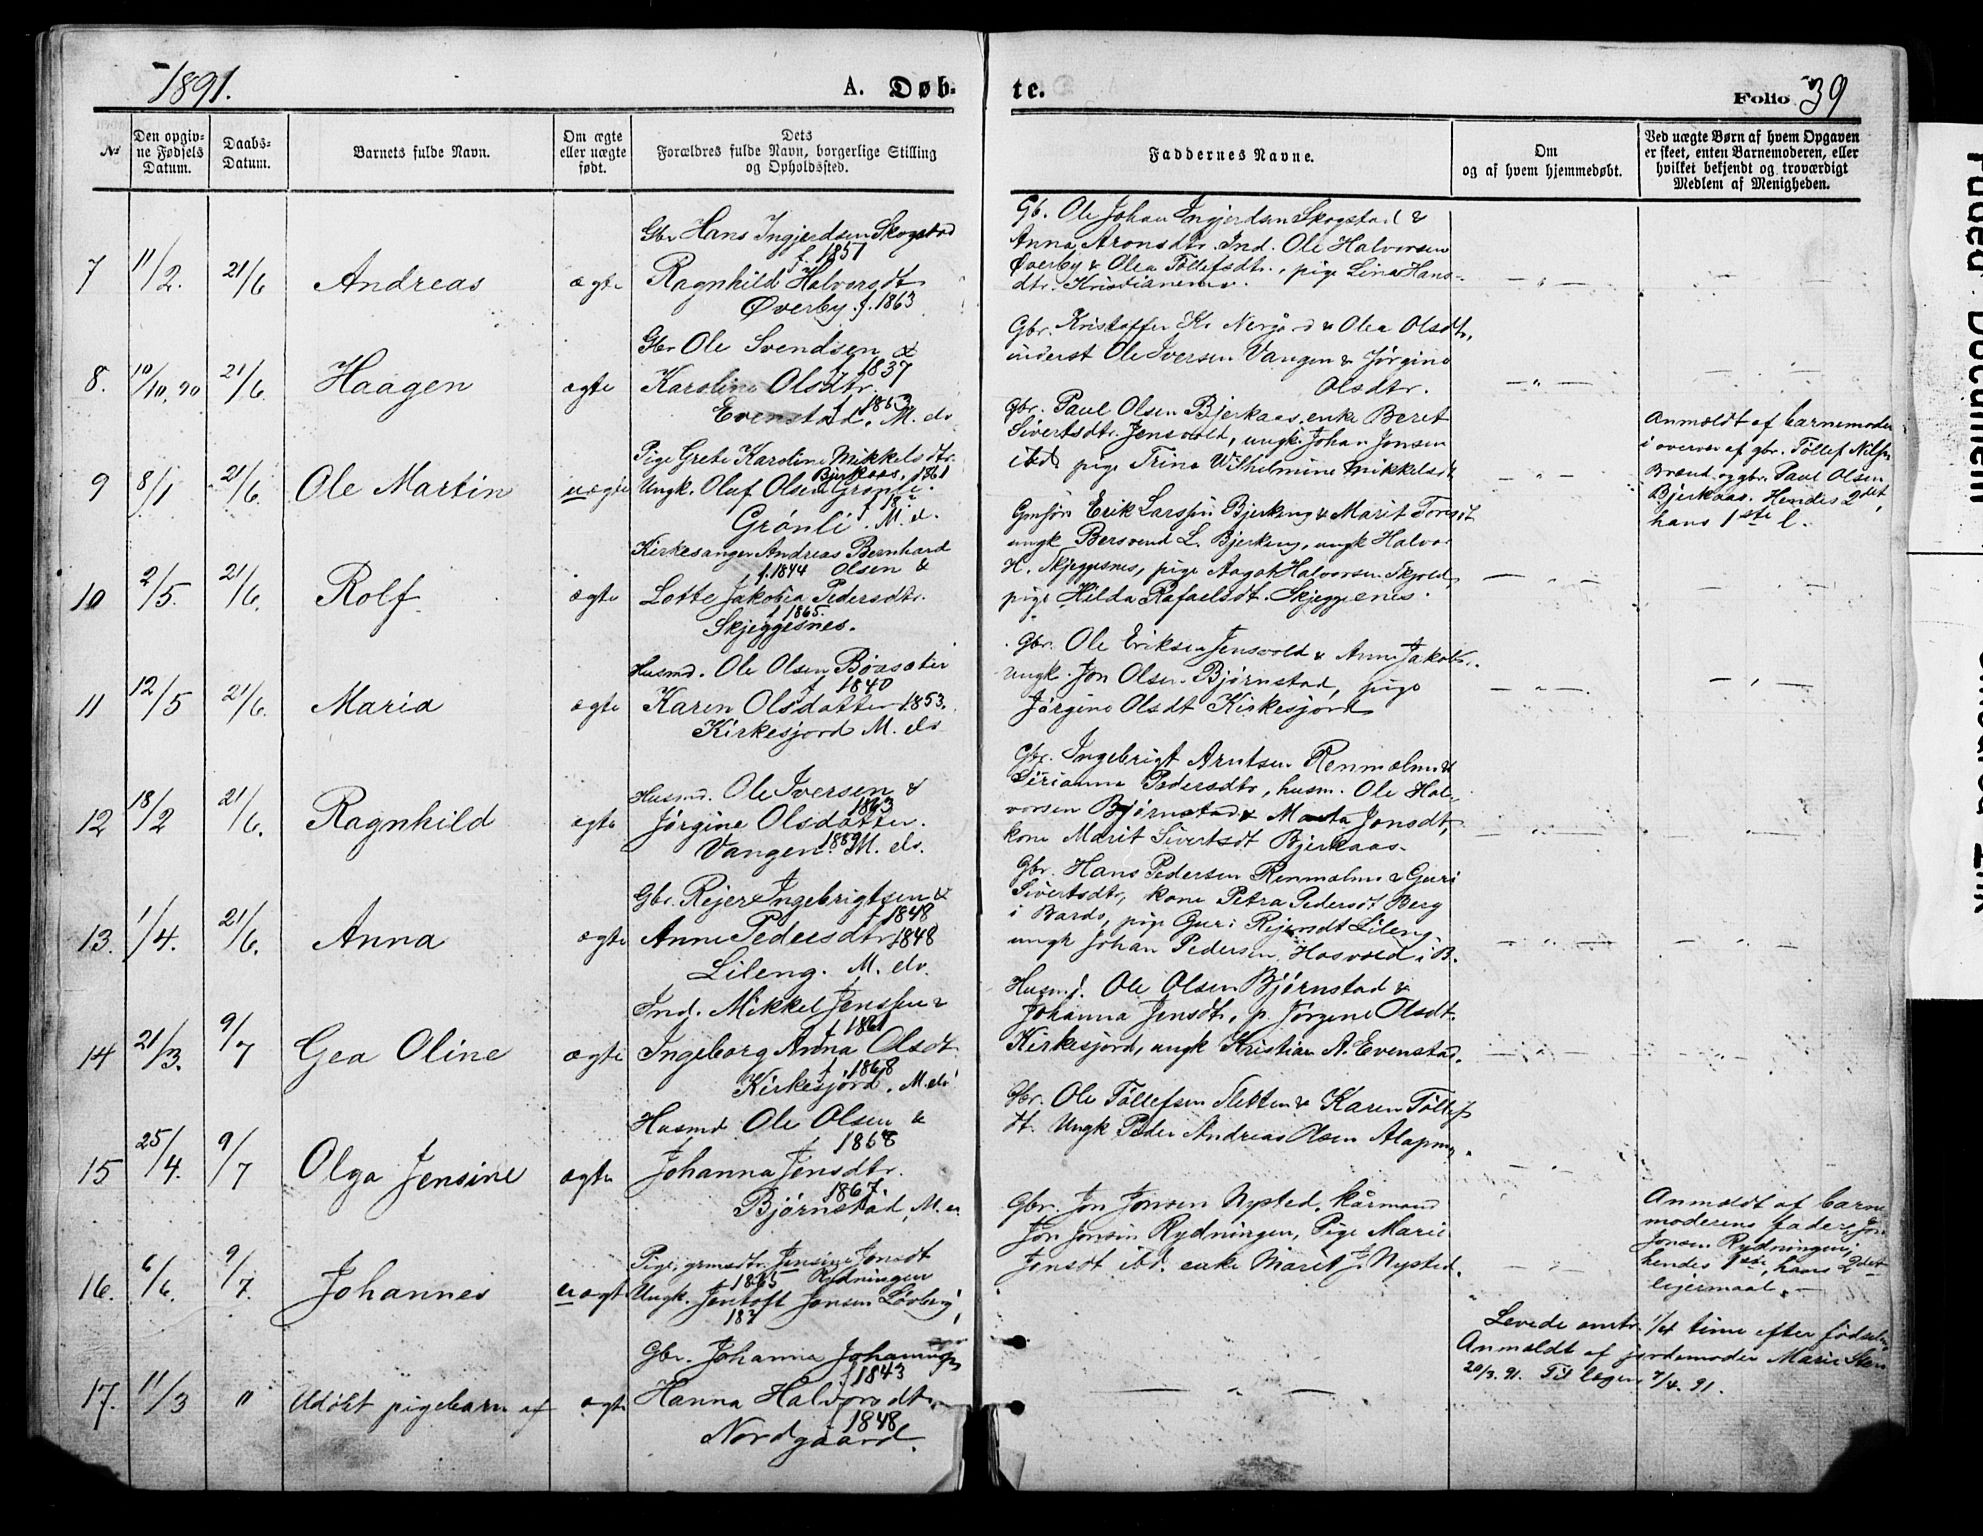 1891.
A. Døb-
te.
Folio 39
№
Den opgiv-
ne Fødsels
Datum.
Daabs-
Datum.
Barnets fulde Navn.
Om ægte
eller uægte
født.
Dets
Forældres fulde Navn, borgerlige Stilling
og Opholdssted.
Faddernes Navne.
Om
og af hvem hjemmedøbt.
Ved uægte Børn af hvem Opgaven
er skeet, enten Barnemoderen, eller
hvilket bekjendt og troværdigt
Medlem af Menigheden.
7 11/2. 21/6 Andreas ægte
Gbr Hans Ingjerdsen Skogstad
f. 1857
Ragnhild Halvorsdt
Øverby f. 1863
Gb. Ole Johan Ingjerdsen Skogstad &
Anna Aronsdtr. Ind. Ole Halvorsen
Øverby & Olea Tollefsdtr., pige Lina Hans-
dtr.
8. 10/10, 90 21/6 Haagen ægte
Gbr Ole Svendsen &
1837
Karoline Olsdtr.
f. 1863
Evenstad. M. elv
Gbr. Kristoffer Kr Nergård & Olea Olsdtr,
inderst Ole Iversen Vangen & Jørgine
Olsdtr.
9 8/1 21/6 Ole Martin uægte
Pige Grete Karoline Mikkelsdtr.
Bjerkaas. 1861
Ungk. Oluf Olsen Grønli.
Grønli. M. e.
Gbr. Paul Olsen Bjerkaas, enke Beret
Sivertsdtr. Jensvold, ungk. Johan Jonsen
ibd, pige Trina Wilhelmine Mikkelsdt
Anmældt af barnemoder
i overvær af gbr. Tollef Nilsen
Brænd og gbr. Paul Olsen
Bjerkaas. Hendes 2det,
hans 1ste l.
10 2/5. 21/6. Rolf. ægte
Kirkesanger Andreas Bernhard
f. 1844 Olsen &
Lotte Jakobia Pedersdtr.
f 1865.
Skjeggesnes.
Gmsøn Erik Larssen Bjerkeng & Marit Toresdt
ungk Bersvend L. Bjerkeng, ungk Halvor
H. Skjeggesnes, pige Aagot Halvorsen Skjold,
pige Hilda Rafaelsdt. Skjeggesnes.
11 12/5 21/6. Maria ægte
Husmd. Ole Olsen
1840
Karen Olsdatter 1853.
Kirkesjord M. elv
Gbr. Ole Eriksen Jensvold & Anne Jakobs.
ungk. Jon Olsen Bjørnstad, pige
Jørgine Olsdt Kirkesjord
12 18/2 21/6. Ragnhild ægte
Husmd. Ole Iversen &
1863
Jørgine Olsdatter.
Vangen. 1859 M. elv.
Gbr. Ingebrigt Arntsen Renmælmo &
Sirianna Pedersdtr, husm. Ole Hal-
vorsen Bjørnstad & Marta Jonsdt,
kone Marit Sivertsdt Bjerkaas.
13. 1/4. 21/6. Anna ægte
Gbr. Rejer Ingebrigtsen &
f 1848
Anne Pedersdtr 1848
Lileng. M. elv.
Gbr. Hans Pedersen Renmælmo & Guri
Sivertsdtr, kone Petra Pedersdt Berg
i Bardo, pige Guri Rejersdt Lileng,
ungk Johan Pedersen Hosvold i B.
14 21/3. 9/7 Gea Oline ægte
Ind. Mikkel Jenssen &
f 1861
Ingeborg Anna Olsdt.
f 1868
Kirkesjord. M. elv
Husmd. Ole Olsen Bjørnstad &
Johanna Jensdt, p. Jørgine Olsdt.
Kirkesjord, ungk Kristian A. Evenstad.
15 25/4. 9/7 Olga Jensine ægte
Husmd Ole Olsen &
1868
Johanna Jensdtr.
1867.
Bjørnstad, M. e.
Gbr. Ole Tollefsen Sletten & Karen Tollefs
dt. Ungk Peder Andreas Olsen Alapmo.
16. 6/6. 9/7. Johannes uægt
Pige, Jensine Jonsdt
1865 Rydningen
Ungk. Jentoft Jonsen Løvberg,
Gbr. Jon Jonsen Nysted, kårmand
Jon Jonsen Rydningen, Pige Marie
Jonsdt ibd. enke Marit J. Nysted.
Anmældt af barne
moderens fader Jon
Jonsen Rydningen,
hendes 1ste, hans 2det
lejermaal.
17. 11/3 " Udøbt pigebarn af ægte
Gbr. Johannes
f 1843
Hanna Halvorsdtr.
f 1848
Nordgaard.
Levede omtr. 1/4 time efter fødselen
Anmældt af jordemoder Marie Steen
20/3. 91. Til lægen 7/4. 91.